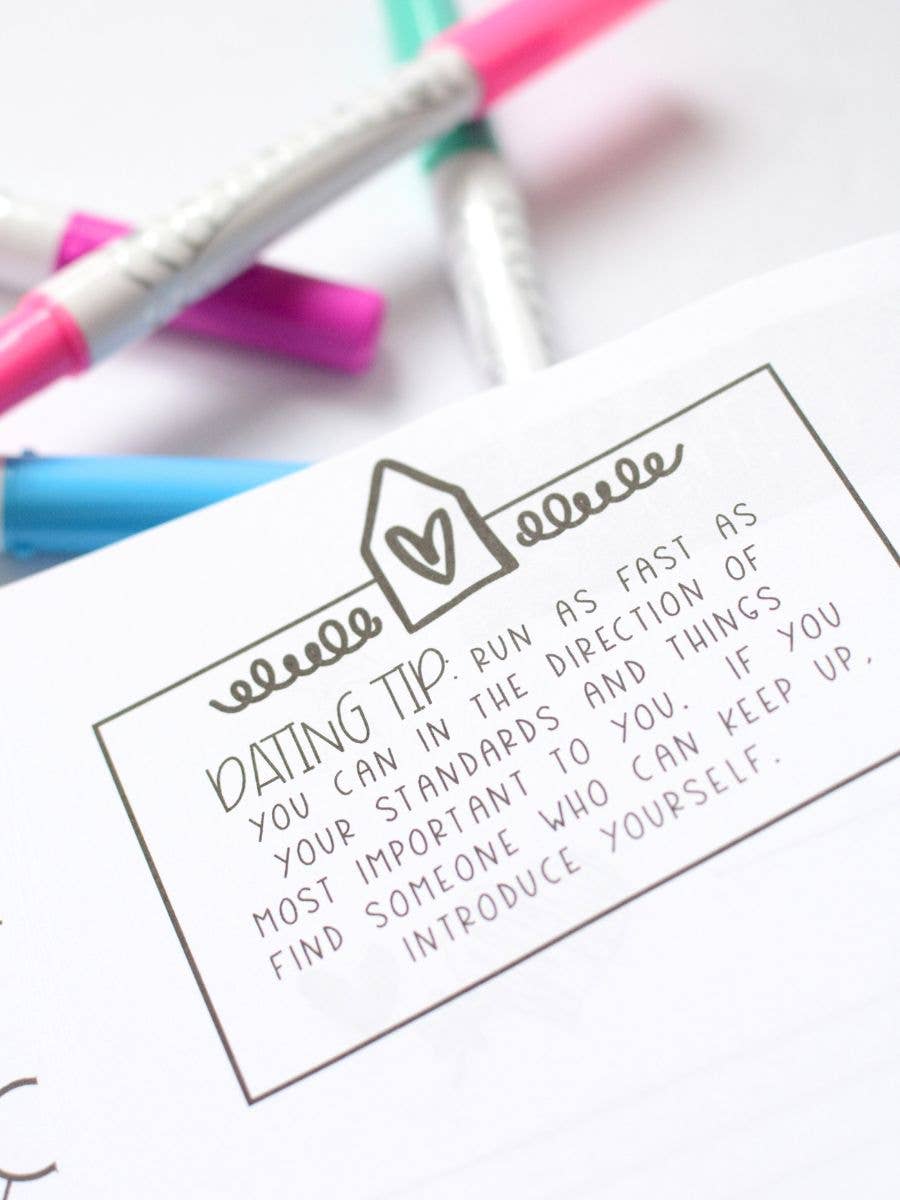 DATING TIP: RUN AS FAST AS
YOU CAN IN THE DIRECTION OF
YOUR STANDARDS AND THINGS
MOST IMPORTANT TO YOU. IF YOU
FIND SOMEONE WHO CAN KEEP UP,
INTRODUCE YOURSELF.